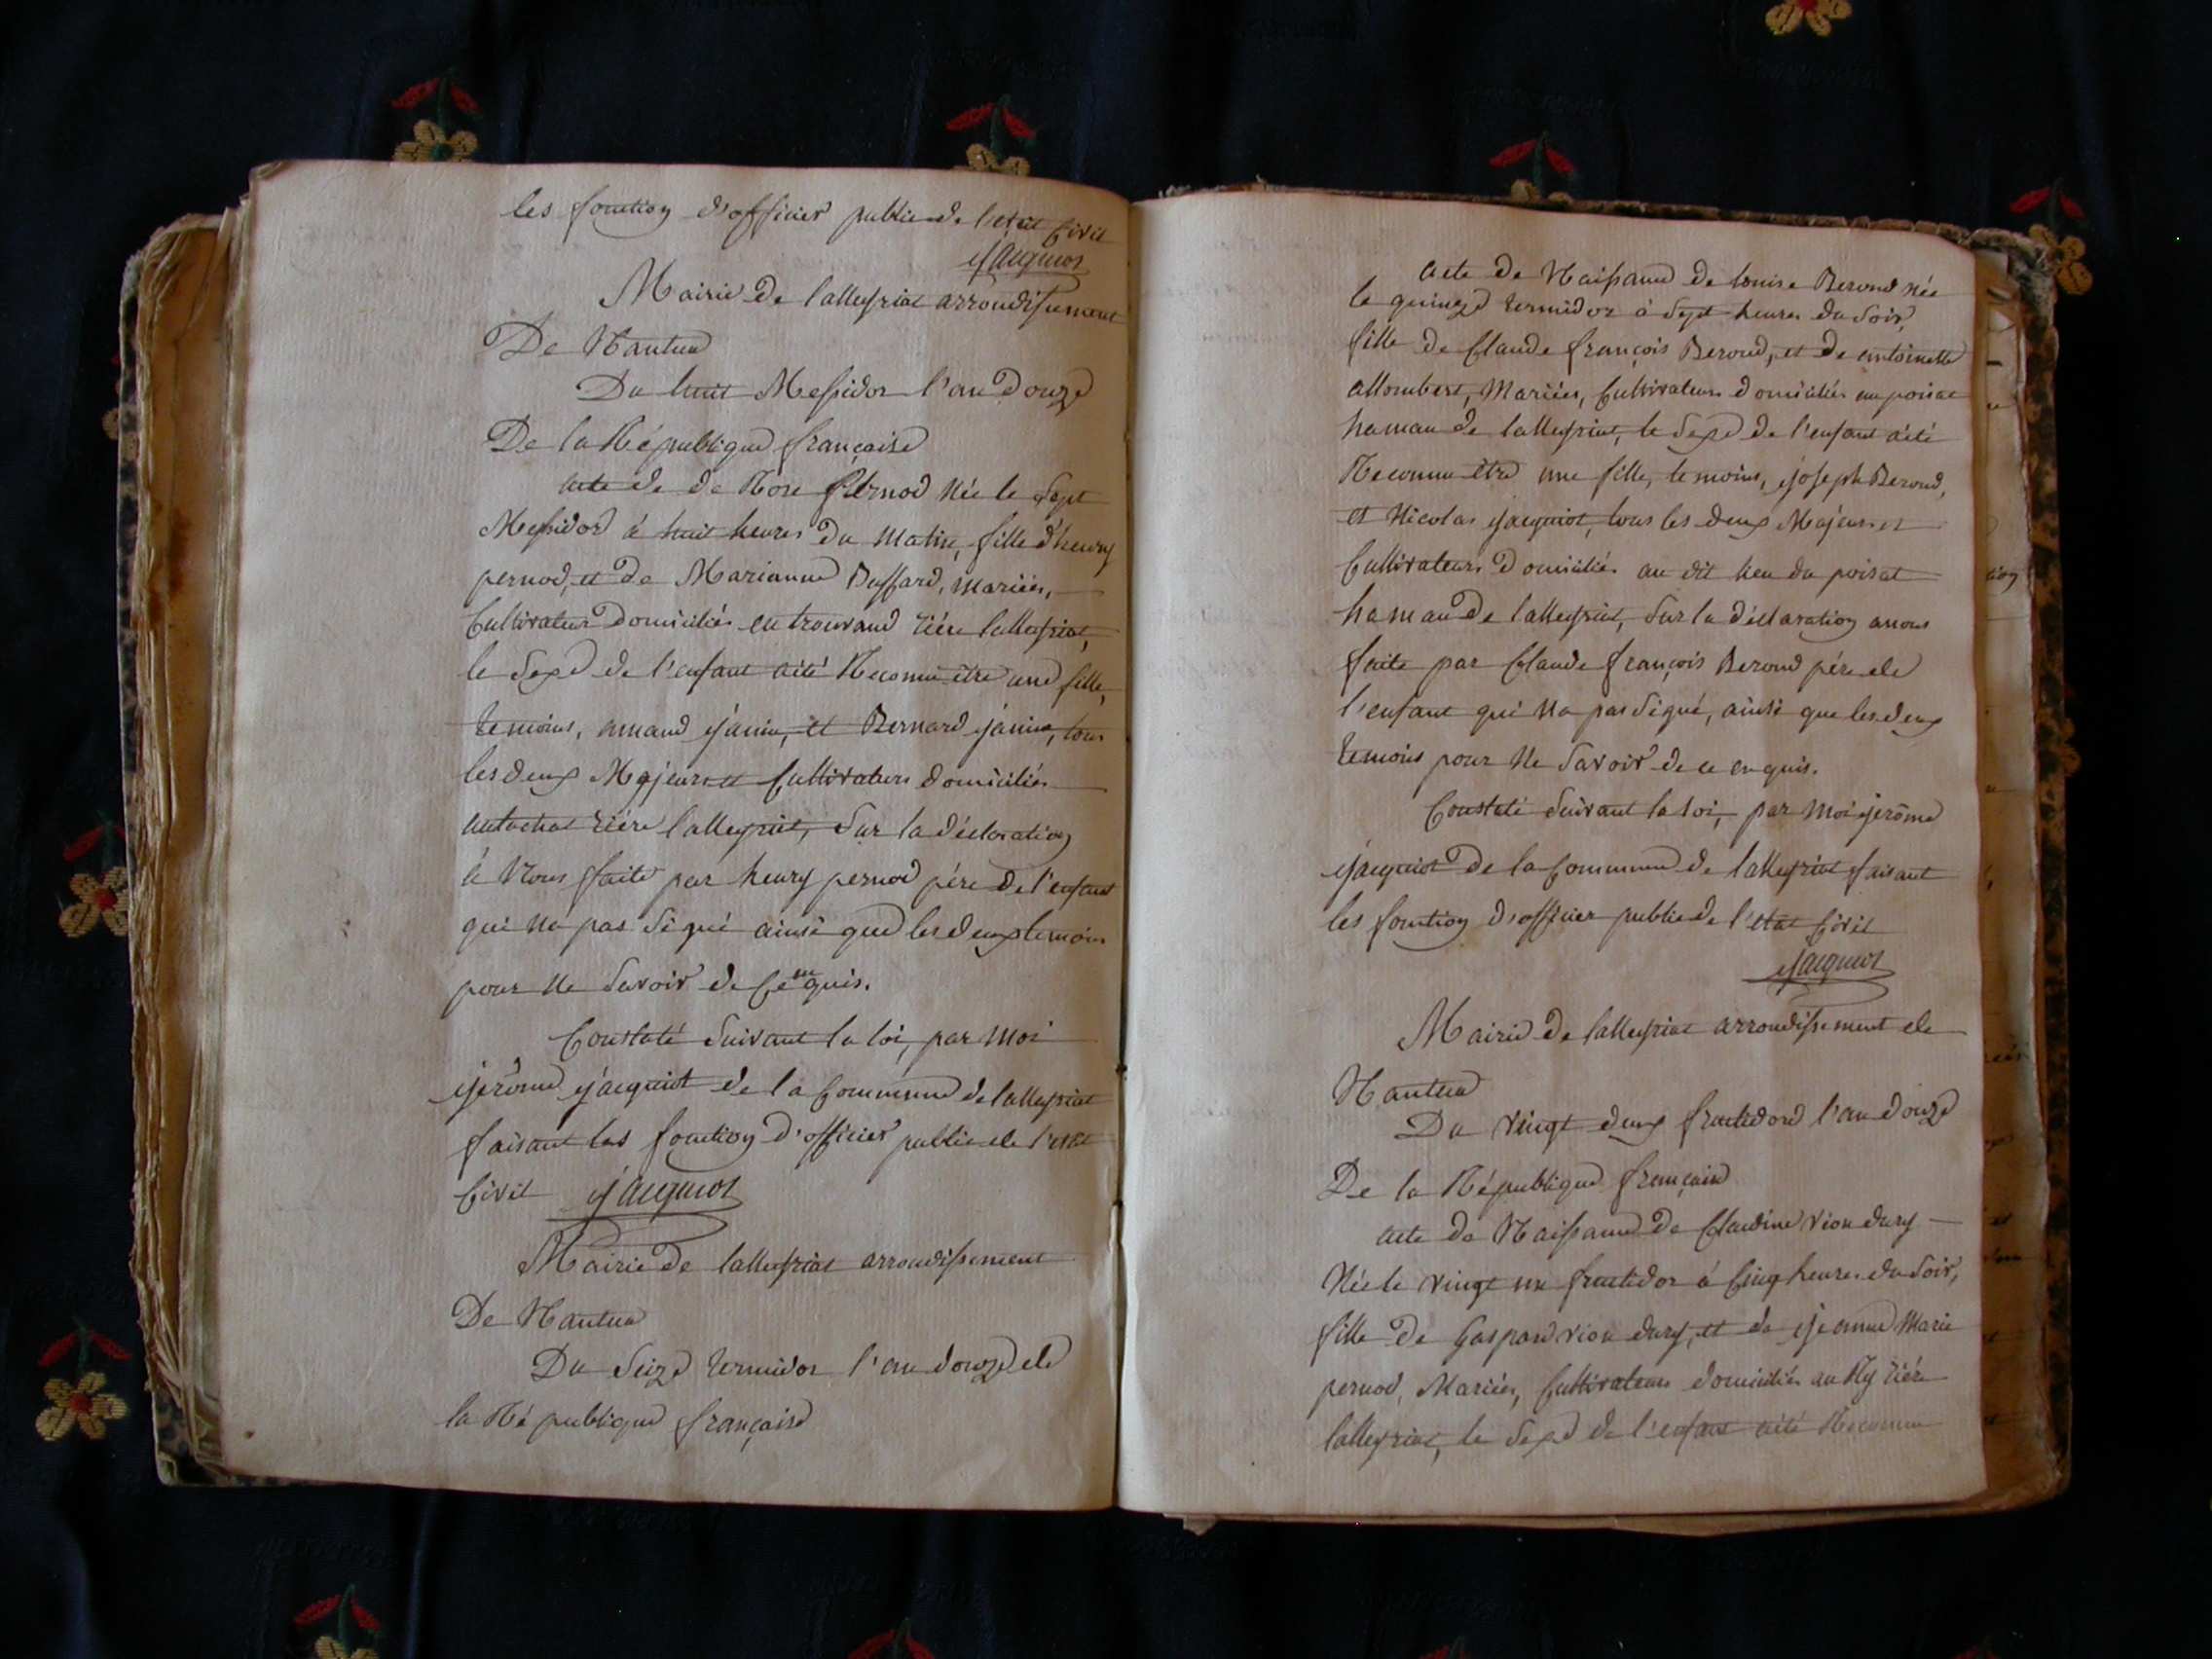 les fonction d'officier public de l'etat Civil
Jacquiot
Mairie de lalleyriat arrondissement
De Nantua
Du huit Messidor l'an Douze
De la République française
acte de de Rose Pernod née le Sept
Messidor à huit heures du Matin, fille d'henry
pernod, et de Marianne Buffard, mariées,
Cultivateur Domiciliés en trouvand riére lalleyriat,
le Sexe de l'enfant aété Reconnu être une fille,
temoins, amand janin, et Bernard janin, tous
les deux Majeurs et Cultivateurs domiciliés
autachat riére lalleyriat, Sur la déclaration
à Nous faite par henry pernod pére de l'enfant
qui na pas Signé ainsi que les deux temoins
pour ne Savoir de Ce enquis.
Constaté Suivant la loi, par Moi
jerôme jacquiot de la Commune de lalleyriat
faisant les fonction d'officier public de l'etat
Civil Jacquiot
Mairie de lalleyriat arrondissement
De Nantua
Du Seize termidor l'an douze de
la République française
acte de Naissance de louise Beroud née
le quinze termidor à Sept heures du Soir,
fille de Claude françois Beroud, et de antoinette
allombert, Mariées, Cultivateurs domiciliés au poisat
hamau de lalleyriat, le Sexe de l'enfant aété
Reconnu être une fille, temoins, joseph Beroud,
et Nicolas jacquiot, tous les deux Majeurs et
Cultivateurs Domiciliés au dit lieu du poisat
hamau de lalleyriat, Sur la déclaration anous
faite par Claude françois Beroud pére de
l'enfant qui na pas Signé, ainsi que les deux
temoins pour Ne Savoir de ce enquis.
Constaté Suivant la loi, par Moi jerôme
jacquiot de la Commune de lalleyriat faisant
les fonction d'officier public de l'etat Civil
Jacquiot
Mairie de lalleyriat arrondissement de
Nantua
Du vingt deux fructidord l'an douze
De la République française
acte de Naissance de Claudine vion dury
Née le vingt un fructidor à Cinq heures du Soir,
fille de Gaspard vion dury, et de jeanne Marie
pernod, Mariées, Cultivateurs domiciliés au Ry riére
lalleyriat, le Sexe de l'enfant aété Reconnu